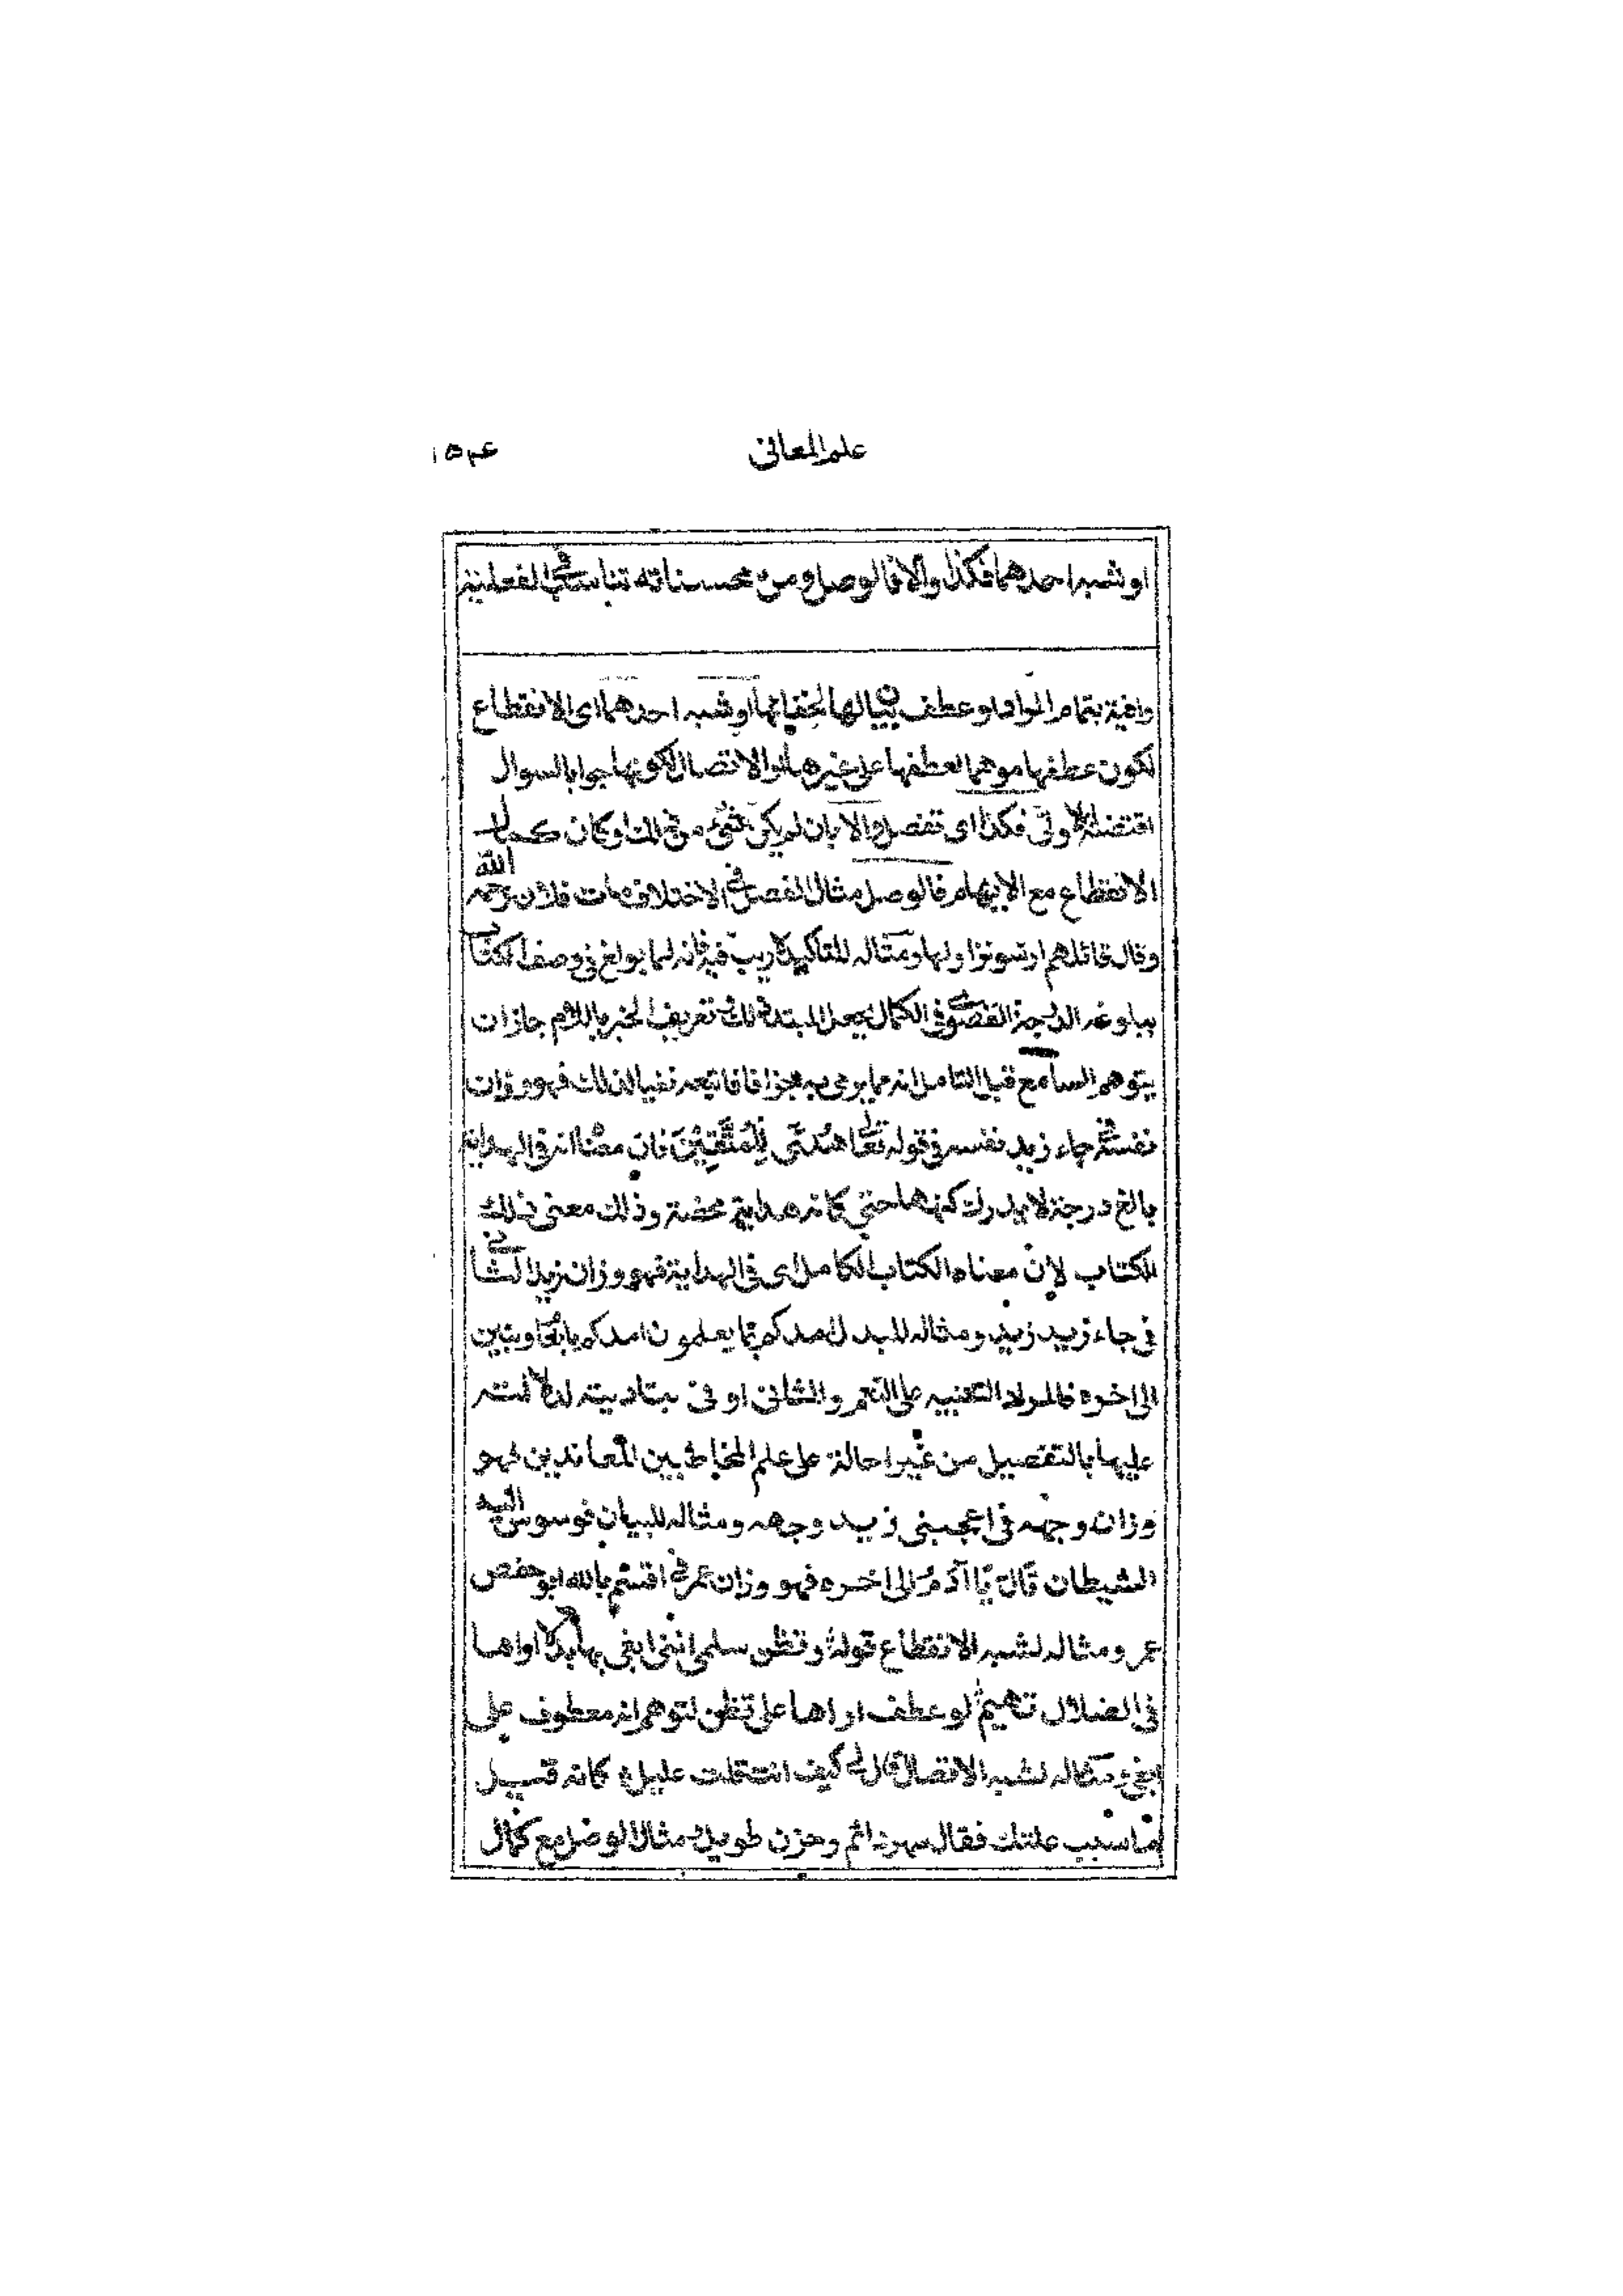 علم المعانى
١٥٣ع
او شبه احدهما فكذا والا فالوصل ومن محسناته تناسب الفعلية
وافية بتمام المراد او عطف بيان لها لخفائها او شبه احدهما اى الانقطاع
لكون عطفها موهما لعطفها على غيرها او الاتصال لكونها جوابا لسوال
اقتضته الاولى فكذا اى تفصل والا بان لم يكن شئ من ذلك او كان كمال
الانقطاع مع الايهام فالوصل مثال الفصل فى الاختلاف مات فلان رحمه الله
وقال قائلهم ارسوا نزاولها ومثاله للتاكيد لا ريب فيه فانه لما بولغ فى وصف الكتاب
ببلوغه الدرجة القصوى فى الكمال بجعل المبتدا ذلك وتعريف الخبر باللام جاز ان
يتوهم السامع قبل التامل انه مما يرمى به جزافا فاتبعه نفيا لذلك فهو وزان
نفسه فى جاء زيد نفسه فى قوله تعالى هُدًى لِّلْمُتَّقِيْنَ فان معناه انه فى الهداية
بالغ درجة لا يدرك كنهها حتى كانه هداية محضة وذلك معنى ذلك
الكتاب لان معناه الكتاب الكامل اى فى الهداية فهو وزان زيد الثانى
فى جاء زيد زيد ومثاله للبدل امدكم بما يعلمون امدكم بانعام وبنين
الى اخره فالمراد التنبيه على النعم والثانى اوفى بتاديته لدلالته
عليها بالتفصيل من غير احالة على علم المخاطبين المعاندين فهو
وزان وجهه فى اعجبنى زيد وجهه ومثاله للبيان فوسوس اليه
الشيطان قَالَ يَا آدَمُ الى اخره فهو وزان عمر فى اقسم بالله ابو حفص
عمر ومثاله لشبه الانقطاع قوله وتظن سلمى اننى ابغى بها بدلا اراها
فى الضلال تهيم لو عطف اراها على تظن لتوهم انه معطوف على
ابغى ومثاله لشبه الاتصال قال لى كيف انت قلت عليل كانه قيل
ما سبب علتك فقال سهر دائم وحزن طويل مثال الوصل مع كمال